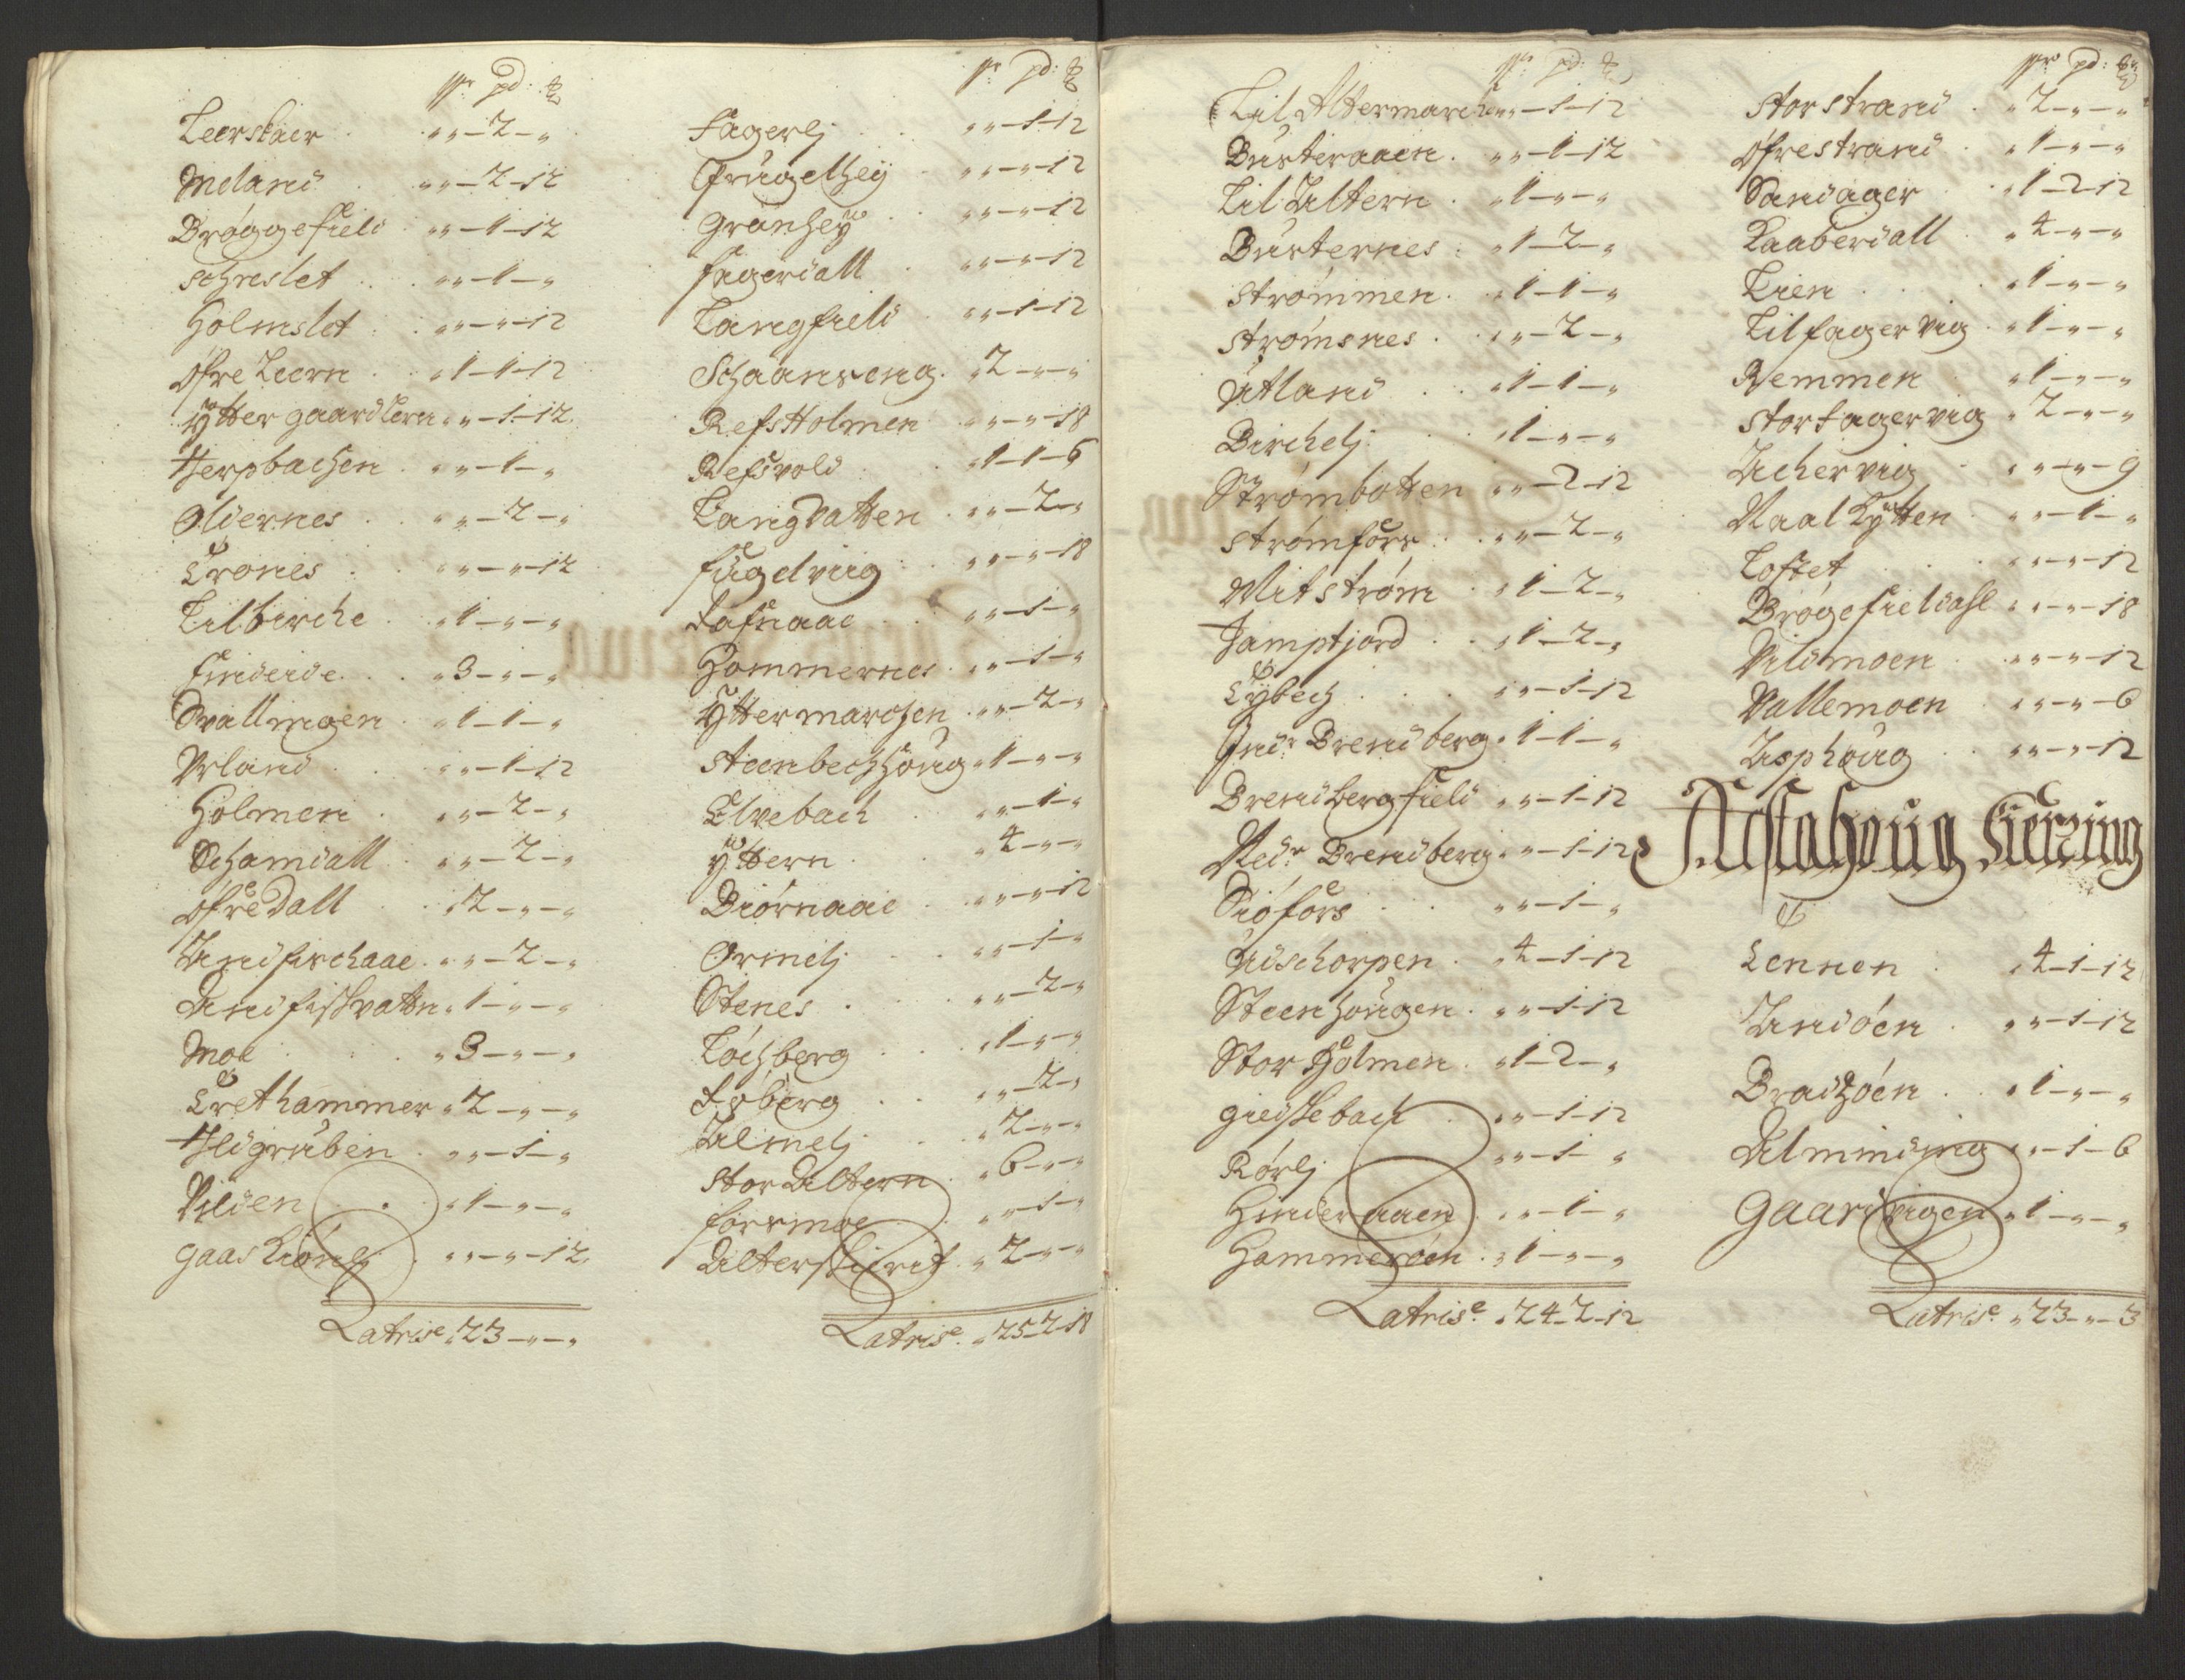 pr pd:
Leerskaer . „ „ – 2 – „
Meland . „ „ – 2 – 12
Brøggefield „ „ – 1 – 12
schreslet . „ „ – 1 – „
Holmslet . „ „ – „ – 12
Øfre Leern . „ 1 – 1 – 12
Ytter gaard Lern „ „ – 1 – 12
Herpbachen . „ „ – 1 – „
Oldernes . „ „ – 2 – „
Trones . „ „ – „ – 12
Lilbirche . „ 1 – „ – „
Findeide . „ 3 – „ – „
Svallmoen . „ 1 – 1 – „
Urland . „ „ – 1 – 12
Holmen . „ „ – 2 – „
Schamdall . „ „ – 2 – „
Øfre Dall . „ 2 – „ – „
Andfischaae . „ „ – 2 – „
Andfischvattn „ 1 – „ – „
Moe . „ 3 – „ – „
Trethammer „ 2 – „ – „
Ildgruben . „ „ – 1 – „
Vilden . „ 1 – „ – „
Gaaskiønli . „ „ – „ – 12
Latris.e „ 23 – „ – „
pr pd:
Fagerlj . „ „ – 1 – 12
Grugelhey . „ „ – „ – 12
Grønhey . „ „ – „ – 12
Fagerdall . „ „ – „ – 12
Langfield . „ „ – 1 – 12
Schaanseng . „ 2 – „ – „
Refs Holmen . „ „ – „ – 18
Refsvold . „ 1 – 1 – 6
Langvatten . „ „ – 2 – „
Fugelviig . „ „ – „ – 18
Dafnaae . „ „ – 1 – „
Hammernes . „ „ – 1 – „
Yttermarchen . „ „ – 2 – „
Steenbechhøug „ 1 – „ – „
Elvebach . „ „ – 1 – „
Yttern . „ 4 – „ – „
Biørnaae . „ „ – „ – 12
Ormelj . „ „ – 1 – „
Stenes . „ „ – 2 – „
Løchberg . „ 1 – „ – „
„ „ – 2 – „
Almelj . „ 2 – „ – „
Stor Altern . „ 6 – „ – „
Forsmoe . „ „ – 1 – „
Alterskiørit . „ 2 – „ – „
Latris.e „ 25 – 2 – 18
pr pd:
Lil Altermarchen „ „ – 1 – 12
Busteraaen . „ „ – 1 – 12
Lil Altern . „ 1 – „ – „
Busternes . „ 1 – 2 – „
Strømmen . „ 1 – 1 – „
Strømsnes . „ „ – 2 – „
Utland . „ 1 – 1 – „
Birchelj . „ 1 – „ – „
Strømbotten „ „ – 2 – 12
Strømfors . „ „ – 2 – „
Mitstrøm . „ 1 – 2 – „
Jamptjord . „ 1 – 2 – „
Tybech . „ „ – 1 – 12
Indr Brendberg „ 1 – 1 – „
Brendbergfield „ „ – 1 – 12
Nedr Brendberg „ „ – 1 – 12
Siøfors . „ „ – 1 – „
Udschorpen . „ 4 – 1 – 12
Steenhougen . „ „ – 1 – 12
Stor Holmen . „ 1 – 2 – „
Gieissebach . „ „ – 1 – 12
Rørlj . „ „ – 1 – „
Hinderaaen . „ „ – 1 – „
Hammerøen . „ 1 – „ – „
Latris.e „ 24 – 2 – 12
pr pd:
Storstrand . „ 2 – „ – „
Øfrestrand . „ 1 – „ – „
Sandager . „ 1 – 2 – 12
Kaaberdall . „ 4 – „ – „
Lien . „ 1 – „ – „
Lilfagervig . „ 1 – „ – „
Remmen . „ 1 – „ – „
Storfagervig „ 2 – „ – „
Achervig . „ „ – „ – 9
Maalkytten . „ „ – 1 – „
Loftet . „ „ – „ – 12
Brøgefieldahl . „ „ – „ – 18
Vildmoen . „ „ – „ – 12
Vallemoen . „ „ – „ – 6
Asphoug . „ „ – „ – 12
Alstahoug Fierring
Tennen . „ 4 – 1 – 12
Andøen . „ „ – 1 – 12
Bradzøen . „ 1 – „ – „
Alminding „ „ – 1 – 6
Gaardvigen „ 1 – „ – „
Latris.e „ 23 – „ – 3